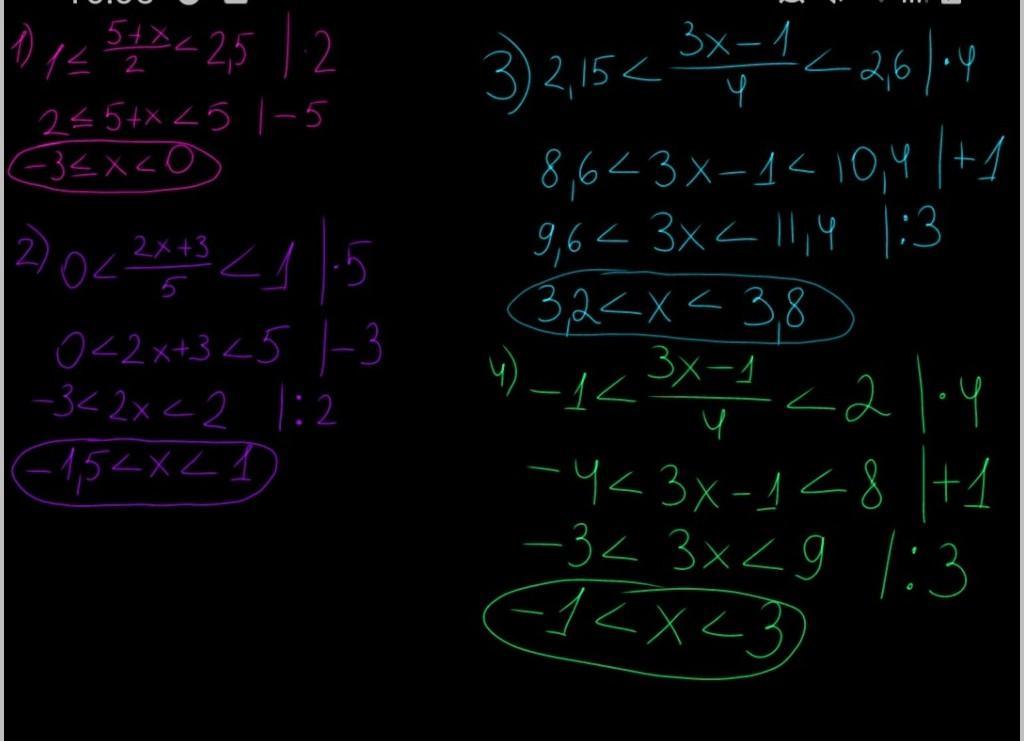 1) 1 ≤ (5+x)/2 < 2,5 | 2
2 ≤ 5+x < 5 | −5
−3 ≤ x < 0
2) 0 < (2x+3)/5 < 1 | ·5
0 < 2x+3 < 5 | −3
−3 < 2x < 2 | : 2
−1,5 < x < 1
3) 2,15 < (3x−1)/4 < 2,6 | ·4
8,6 < 3x−1 < 10,4 | +1
9,6 < 3x < 11,4 | :3
3,2 < x < 3,8
4) −1 < (3x−1)/4 < 2 | ·4
−4 < 3x−1 < 8 | +1
−3 < 3x < 9 | :3
−1 < x < 3